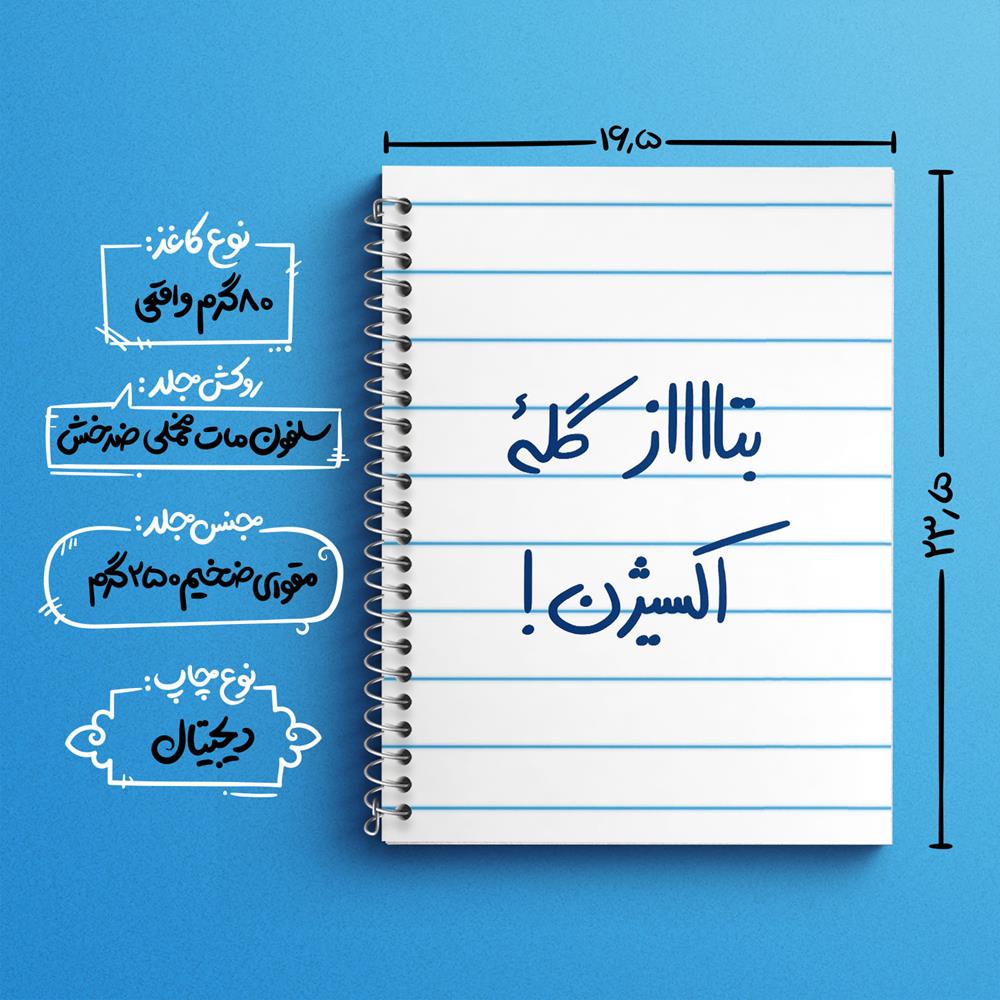 ۱۶٫۵
۲۳٫۵
نوع کاغذ:
۸۰گرم واقعی
روکش جلد:
سلفون مات مخملی ضدخش
جنس جلد:
مقوای ضخیم ۲۵۰گرم
نوع چاپ:
دیجیتال
بتااااز گلهٔ
اکسیژن!